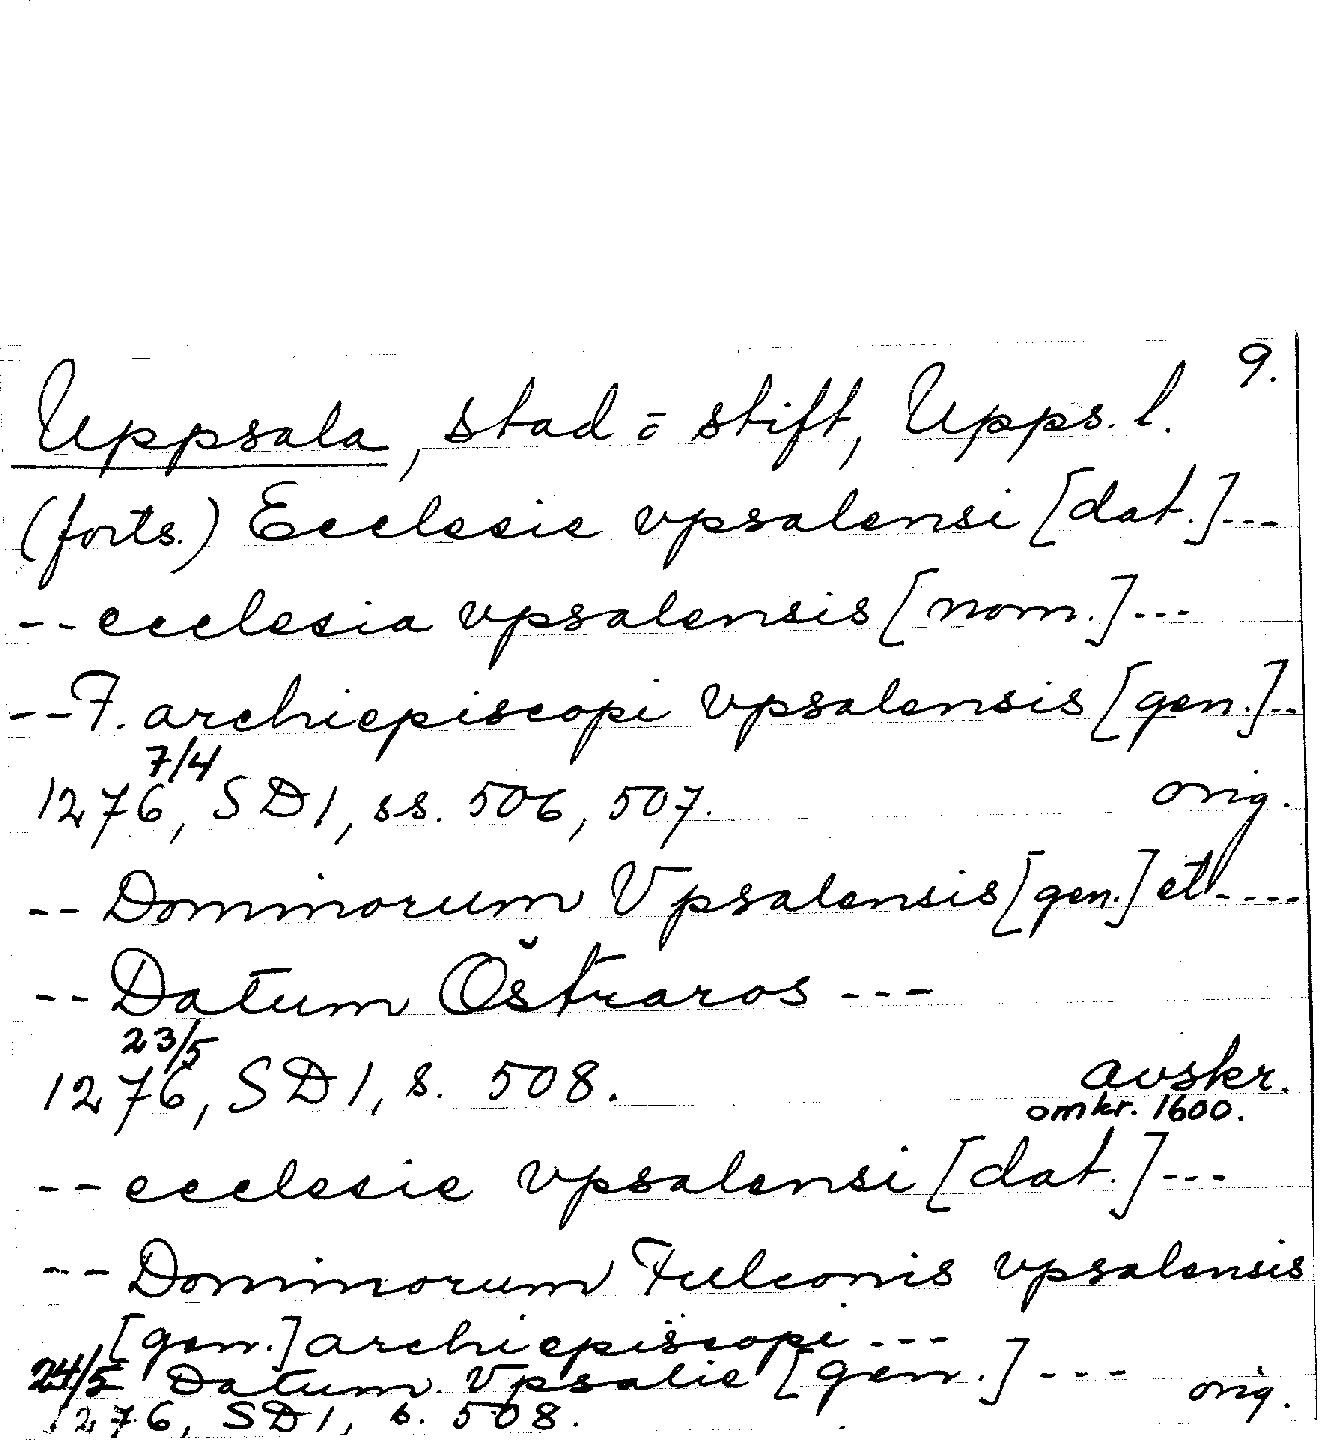 9.
Uppsala, stad = stift, Upps. l.
(forts.) Ecclesie vpsalensi [dat.]---
-- ecclesia vpsalensis [nom.]---
-- F. archiepiscopi vpsalensis [gen.]--
7/4
1276, SD1, ss. 506, 507. orig.
-- Dominorum Vpsalensis [gen.] et ----
-- Datum Östraros ---
23/5
1276, SD1, s. 508. avskr.
omkr. 1600.
-- ecclesie vpsalensi [dat.]---
-- Dominorum Fulconis vpsalensis
[gen.] archiepiscopi ---
24/5 Datum Vpsalie [gen.] --- orig.
1276, SD1, s. 508.